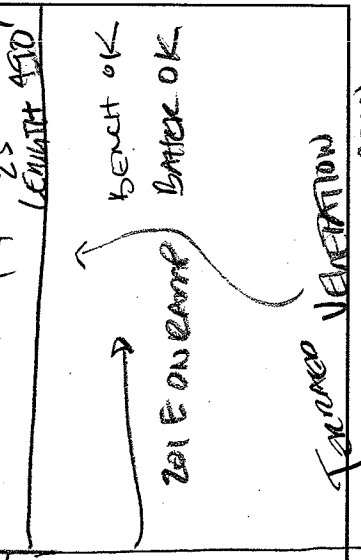 LENGTH 450'
BENCH OK
BATTER OK
201 E ON RAMP
TERRACED VEGETATION